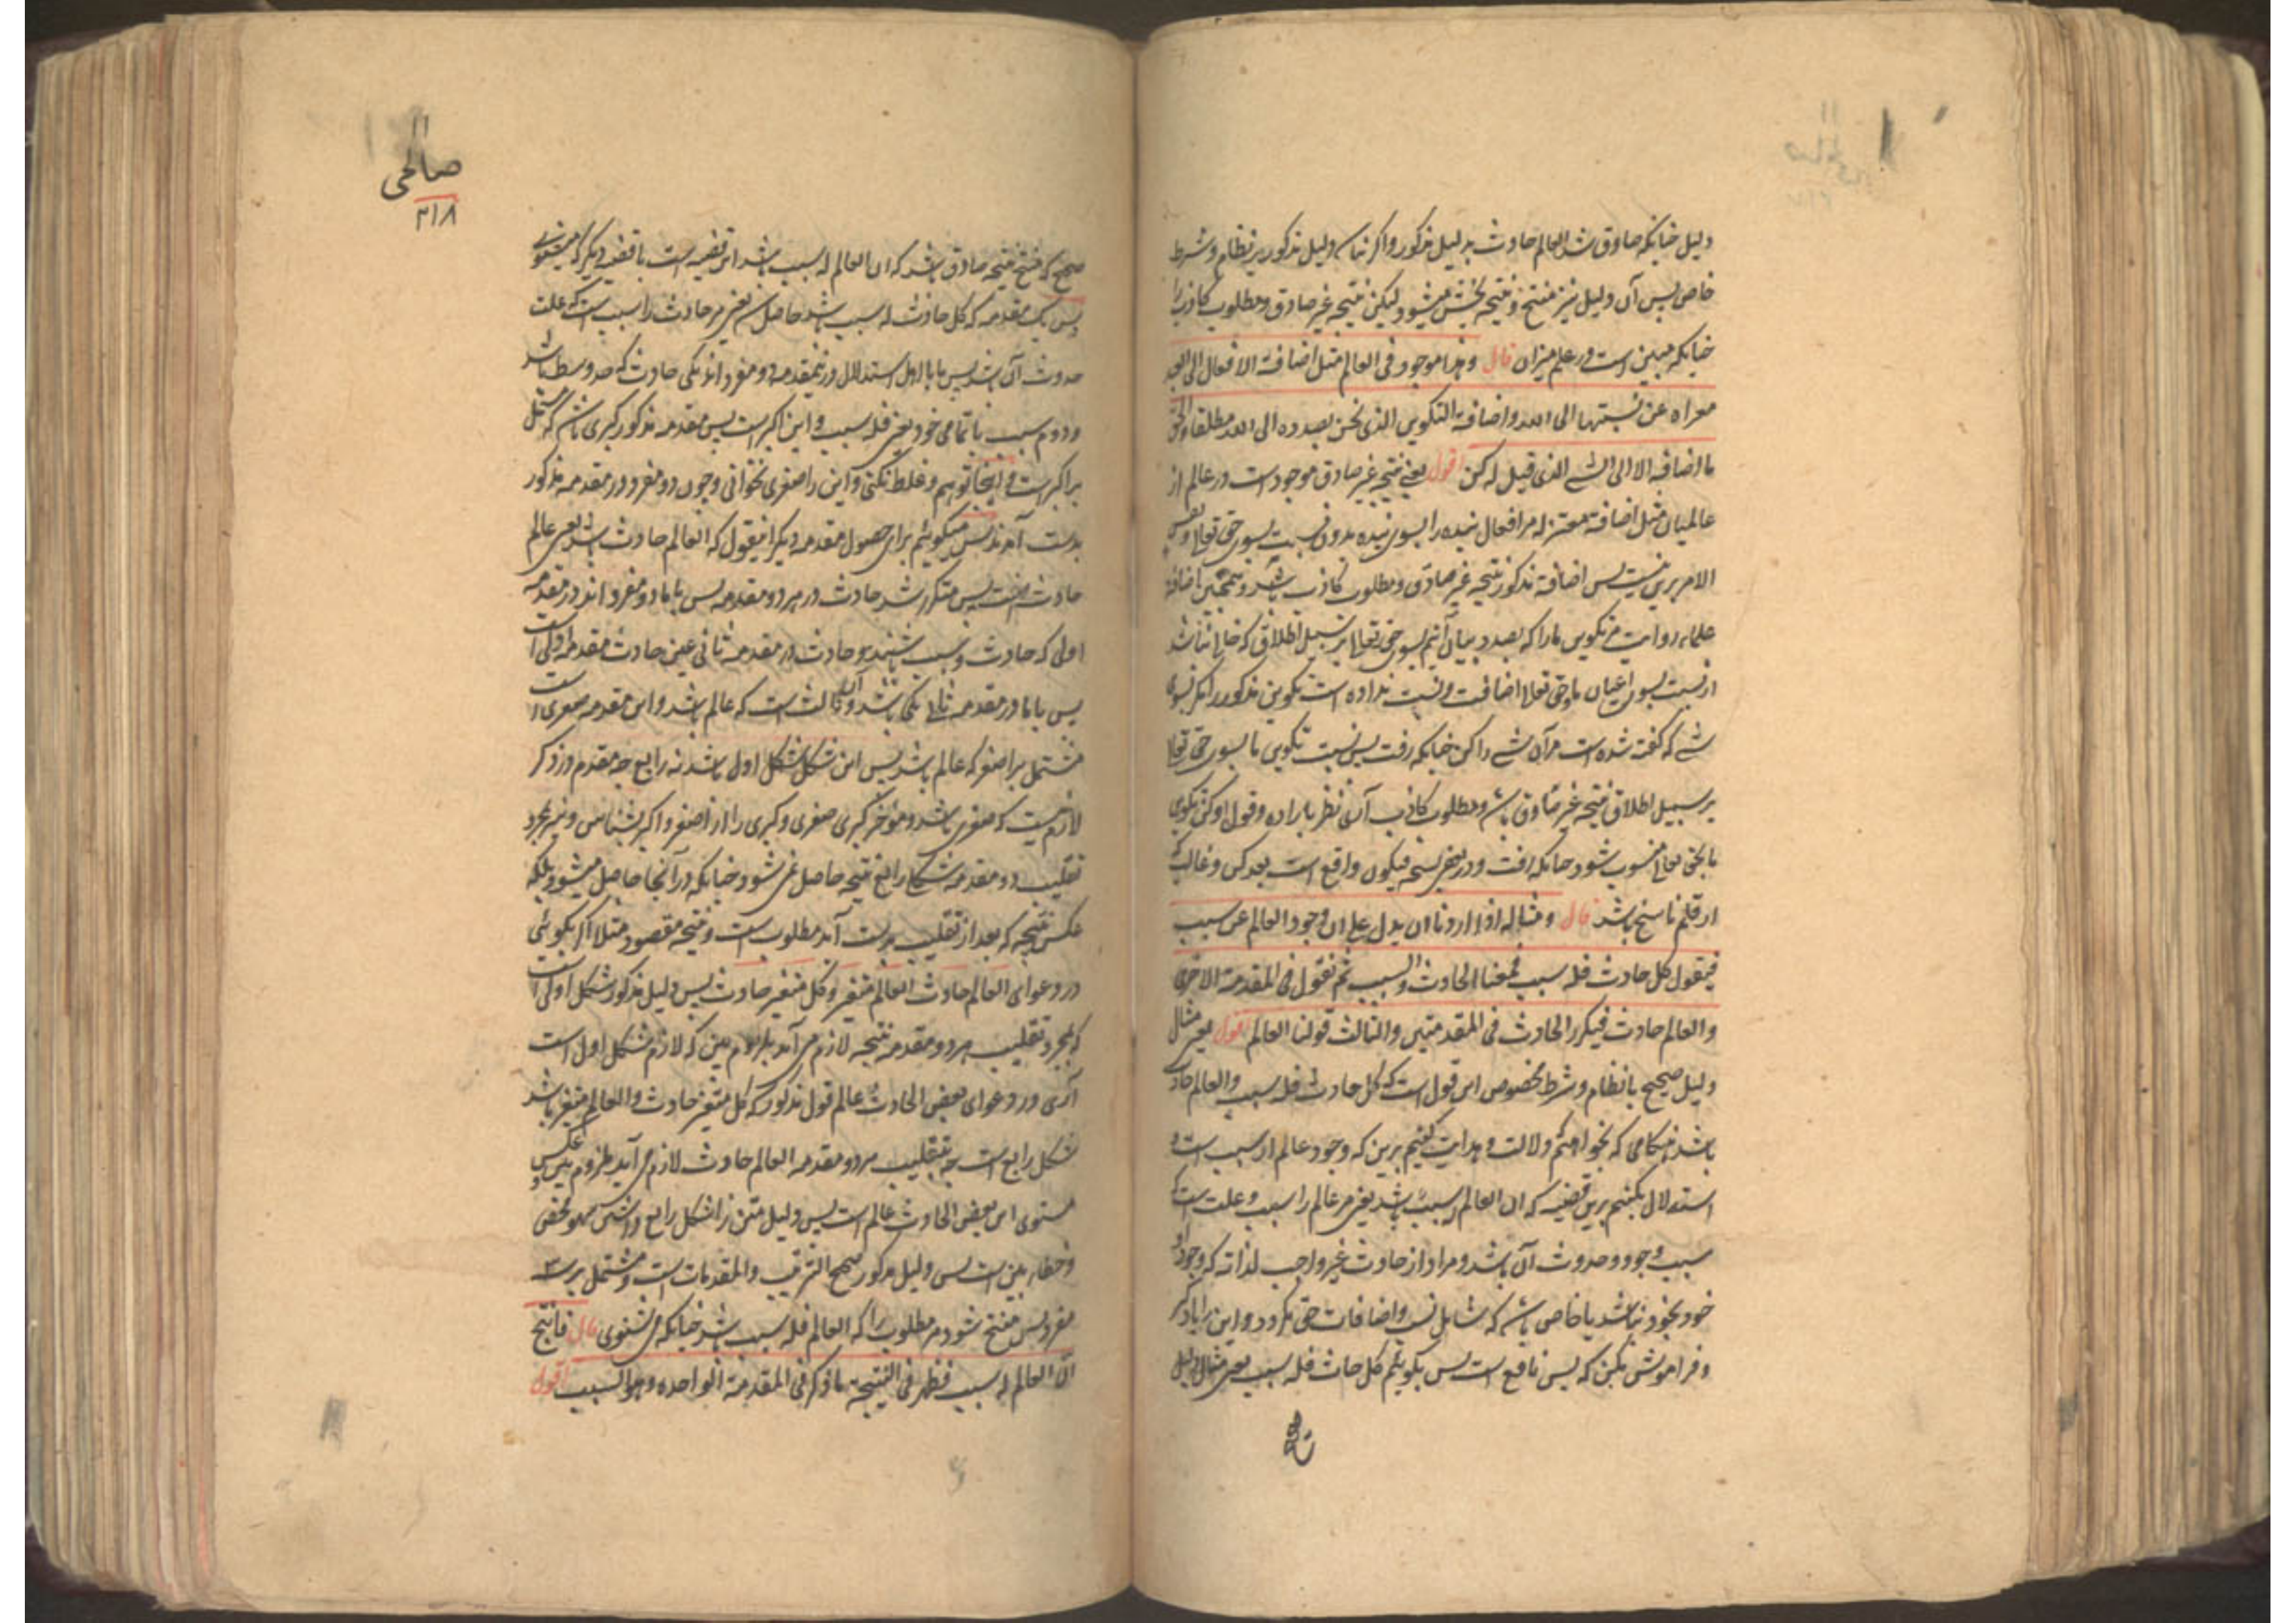 دلیل چنانکه صادق شد العالم حادث بدلیل مذکور واکر نباشد دلیل مذکور بر نظام و شرط
خاص پس آن دلیل نیز منتج و نتیجه بخش میشود لیکن نتیجه غیر صادق و مطلوب کاذب را
چنانکه مبین است در علم میزان قال وهذا موجود فی العالم مثل اضافة الافعال الی العبد
معراه عن نسبتها الی الله واضافة التکوین الذی نحن بصدده الی الله مطلقا والحق
ما اضافه الا الی الشئ الذی قیل له کن اقول یعنی نتیجه غیر صادق موجود است در عالم از
عالمیان مثل اضافت معتزله مر افعال بنده را بسوی بنده بدون نسبت بسوی حق تعالی و نفس
الامر برین نیست پس اضافة مذکور نتیجه غیر صادق و مطلوب کاذب باشد و همچنین اضافة
علماء تکوین مارا که بصدد بیان آنیم بسوی حق تعالی بر سبیل اطلاق که خالی نباشد
از نسبت بسوی اعیان با حق تعالی اضافت و نسبت نداده است تکوین مذکور را مکر بسوی
شئ که کفته شده است مر آن شئ را کن چنانکه رفت پس نسبت تکوین ما بسوی حق تعالی
بر سبیل اطلاق نتیجه غیر صادق باشد و مطلوب کاذب آن نظر باراده و قول او کن تکوین
ما بحق تعالی منسوب شود چنانکه رفت و در بعض نسخه فیکون واقع است بعد کن و غالب که
از قلم ناسخ باشد قال ومثاله اذا اردنا ان یدل علی ان وجود العالم عن سبب
فیقول کل حادث فله سبب فمعنا الحادث والسبب ثم نقول فی المقدمة الاخری
والعالم حادث فیکرر الحادث فی المقدمتین والثالث قولنا العالم اقول یعنی مثال
دلیل صحیح بانظام و شرط مخصوص این قول است که کل حادث فله سبب والعالم حادث
باشد هنکامی که بخواهیم دلالت و هدایت کنیم برین که وجود عالم از سبب است و
استدلال بکنیم برین قضیه که ان العالم له سبب باشد یعنی مر عالم را سبب و علت است که
سبب وجود و حدوث آن باشد و مراد از حادث غیر واجب لذاته که وجود او
خود بخود نباشد یا خاص باشد که شامل نسب و اضافات حق کردد و این را یاد کیر
و فراموش مکن که پس نافع است پس بکوئیم کل حادث فله سبب یعنی مثال دلیل
صالحی
۲۱۸
صحیح که منتج نتیجه صادق باشد که ان العالم له سبب باشد این قضیه است با قضیه دیکر که میشنوی
پس یک مقدمه که کل حادث له سبب باشد حاصل شد یعنی هر حادث را سبب است که علت
حدوث آن باشد پس با ما اول استدلال در مقدمه دو مفرد اند یکی حادث که حد وسط باشد
و دوم سبب با تمامی خود یعنی فله سبب و این اکبر است پس مقدمه مذکور کبری باشد که مشتمل
بر اکبر است و اینجا توهم و غلط نکنی و این را صغری نخوانی و چون دو مفرد در مقدمه مذکور
بدست آمدند پس میکوئیم برای حصول مقدمه دیکر نقول که العالم حادث باشد یعنی عالم
حادث است پس متکرر شد حادث در هر دو مقدمه پس با ما دو مفرد اند در مقدمه
اولی که حادث و سبب باشند و حادث در مقدمه ثانی عین حادث مقدمه اولی است
پس با ما در مقدمه ثانی یکی باشد و آن ثالث است که عالم باشد و این مقدمه صغری است
مشتمل بر اصغر که عالم باشد پس این شکل شکل اول باشد نه رابع چه مقدم در ذکر
لازم نیست که صغری باشد و مؤخر کبری صغری و کبری را از اصغر و اکبر بشناس و نیز بمجرد
تقلیب دو مقدمه شکل رابع نتیجه حاصل نمی شود چنانکه در آنجا حاصل میشود بلکه
عکس نتیجه که بعد از تقلیب بدست آید مطلوب است و نتیجه مقصود مثلا اکر بکوئی
در دعوای العالم حادث العالم متغیر وکل متغیر حادث پس دلیل مذکور شکل اولی است
که بمجرد تقلیب هر دو مقدمه نتیجه لازم می آید بلزوم بین که لازم شکل اول است
آری در دعوای بعض الحادث عالم قول مذکور که کل متغیر حادث والعالم متغیر باشد
شکل رابع است چه بتقلیب هر دو مقدمه العالم حادث لازم می آید بلزوم بین و عکس
مستوی این بعض الحادث عالم است پس دلیل متن را شکل رابع دانستن سهو محض
و خطاء بین است پس دلیل مذکور صحیح الترتیب والمقدمات است و مشتمل بر سه
مفرد پس منتج شود مر مطلوب را که العالم فله سبب باشد چنانکه می شنوی قال فانتج
ان العالم له سبب فظهر فی النتیجة ما ذکر فی المقدمة الواحدة وهو السبب اقول